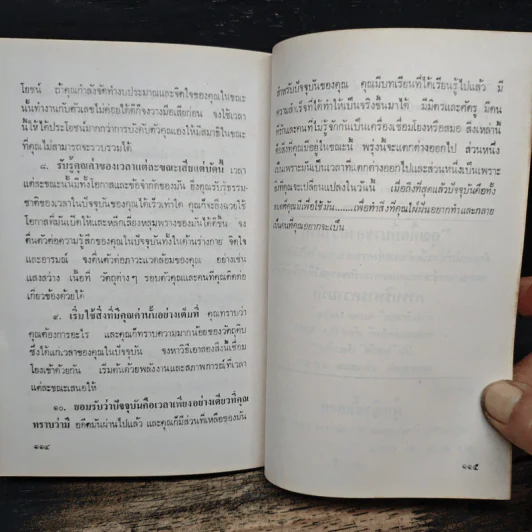 โยชน์ ถ้าคุณกำลังจัดทำงบประมาณและจิตใจของคุณในขณะ
นั้นทำงานกับตัวเลขไม่ค่อยได้ดีก็จงวางมือเสียก่อน จงใช้เวลา
นี้ให้ได้ประโยชน์มากกว่าการบังคับตัวคุณเองให้มีสมาธิในขณะที่
คุณไม่สามารถจะรวบรวมได้
๘. รับรู้คุณค่าของเวลาแต่ละขณะเสียแต่บัดนี้ เวลา
แต่ละขณะนั้นมีทั้งโอกาสและข้อจำกัดของมัน ยิ่งคุณรับรู้ธรรม-
ชาติของเวลาในปัจจุบันของคุณได้เร็วเท่าใด คุณก็จะยิ่งฉวยใช้
โอกาสที่มันเปิดให้และหลีกเลี่ยงหลุมพรางของมันได้ดีขึ้น จง
ตื่นตัวต่อความรู้สึกของคุณในปัจจุบันทั้งในด้านร่างกาย จิตใจ
และอารมณ์ จงตื่นตัวต่อภาวะแวดล้อมของคุณ อย่างเช่น
แสงสว่าง เนื้อที่ วัตถุต่างๆ รอบตัวคุณและคนที่คุณติดต่อ
เกี่ยวข้องด้วยได้
๙. เริ่มใช้สิ่งที่มีคุณค่านั้นอย่างเต็มที่ คุณทราบว่า
คุณต้องการอะไร และคุณก็ทราบความมากน้อยของวัตถุดิบ
ซึ่งได้แก่เวลาของคุณในปัจจุบัน จงหาวิธีเอาสองสิ่งนี้เชื่อม
โยงเข้าด้วยกัน เริ่มต้นด้วยพลังงานและสภาพการณ์ที่เวลา
แต่ละขณะเสนอให้
๑๐. ยอมรับว่าปัจจุบันคือเวลาเพียงอย่างเดียวที่คุณ
ทราบว่ามี อดีตมันผ่านไปแล้ว และคุณก็มีส่วนที่เหลือของมัน
๑๑๔
สำหรับปัจจุบันของคุณ คุณมีบทเรียนที่ได้เรียนรู้ไปแล้ว มี
ความสำเร็จที่ได้ทำให้เป็นจริงขึ้นมาได้ มีมิตรและศัตรู มีคน
ที่รักและคนที่ไม่รู้จักกันเป็นเครื่องเชื่อมโยงหรือสมอ สิ่งเหล่านี้
คือสิ่งที่คุณมีอยู่ในขณะนี้ พรุ่งนี้จะแตกต่างออกไป ส่วนหนึ่ง
เป็นเพราะมันเป็นเวลาที่แตกต่างออกไปและส่วนหนึ่งเป็นเพราะ
สิ่งที่คุณจะเปลี่ยนแปลงในวันนี้ เมื่อถึงที่สุดแล้วปัจจุบันคือทั้ง
หมดที่คุณมีเพื่อใช้มัน.......เพื่อทำสิ่งที่คุณใฝ่ฝันอยากทำและกลาย
เป็นคนที่คุณอยากจะเป็น
๑๑๕